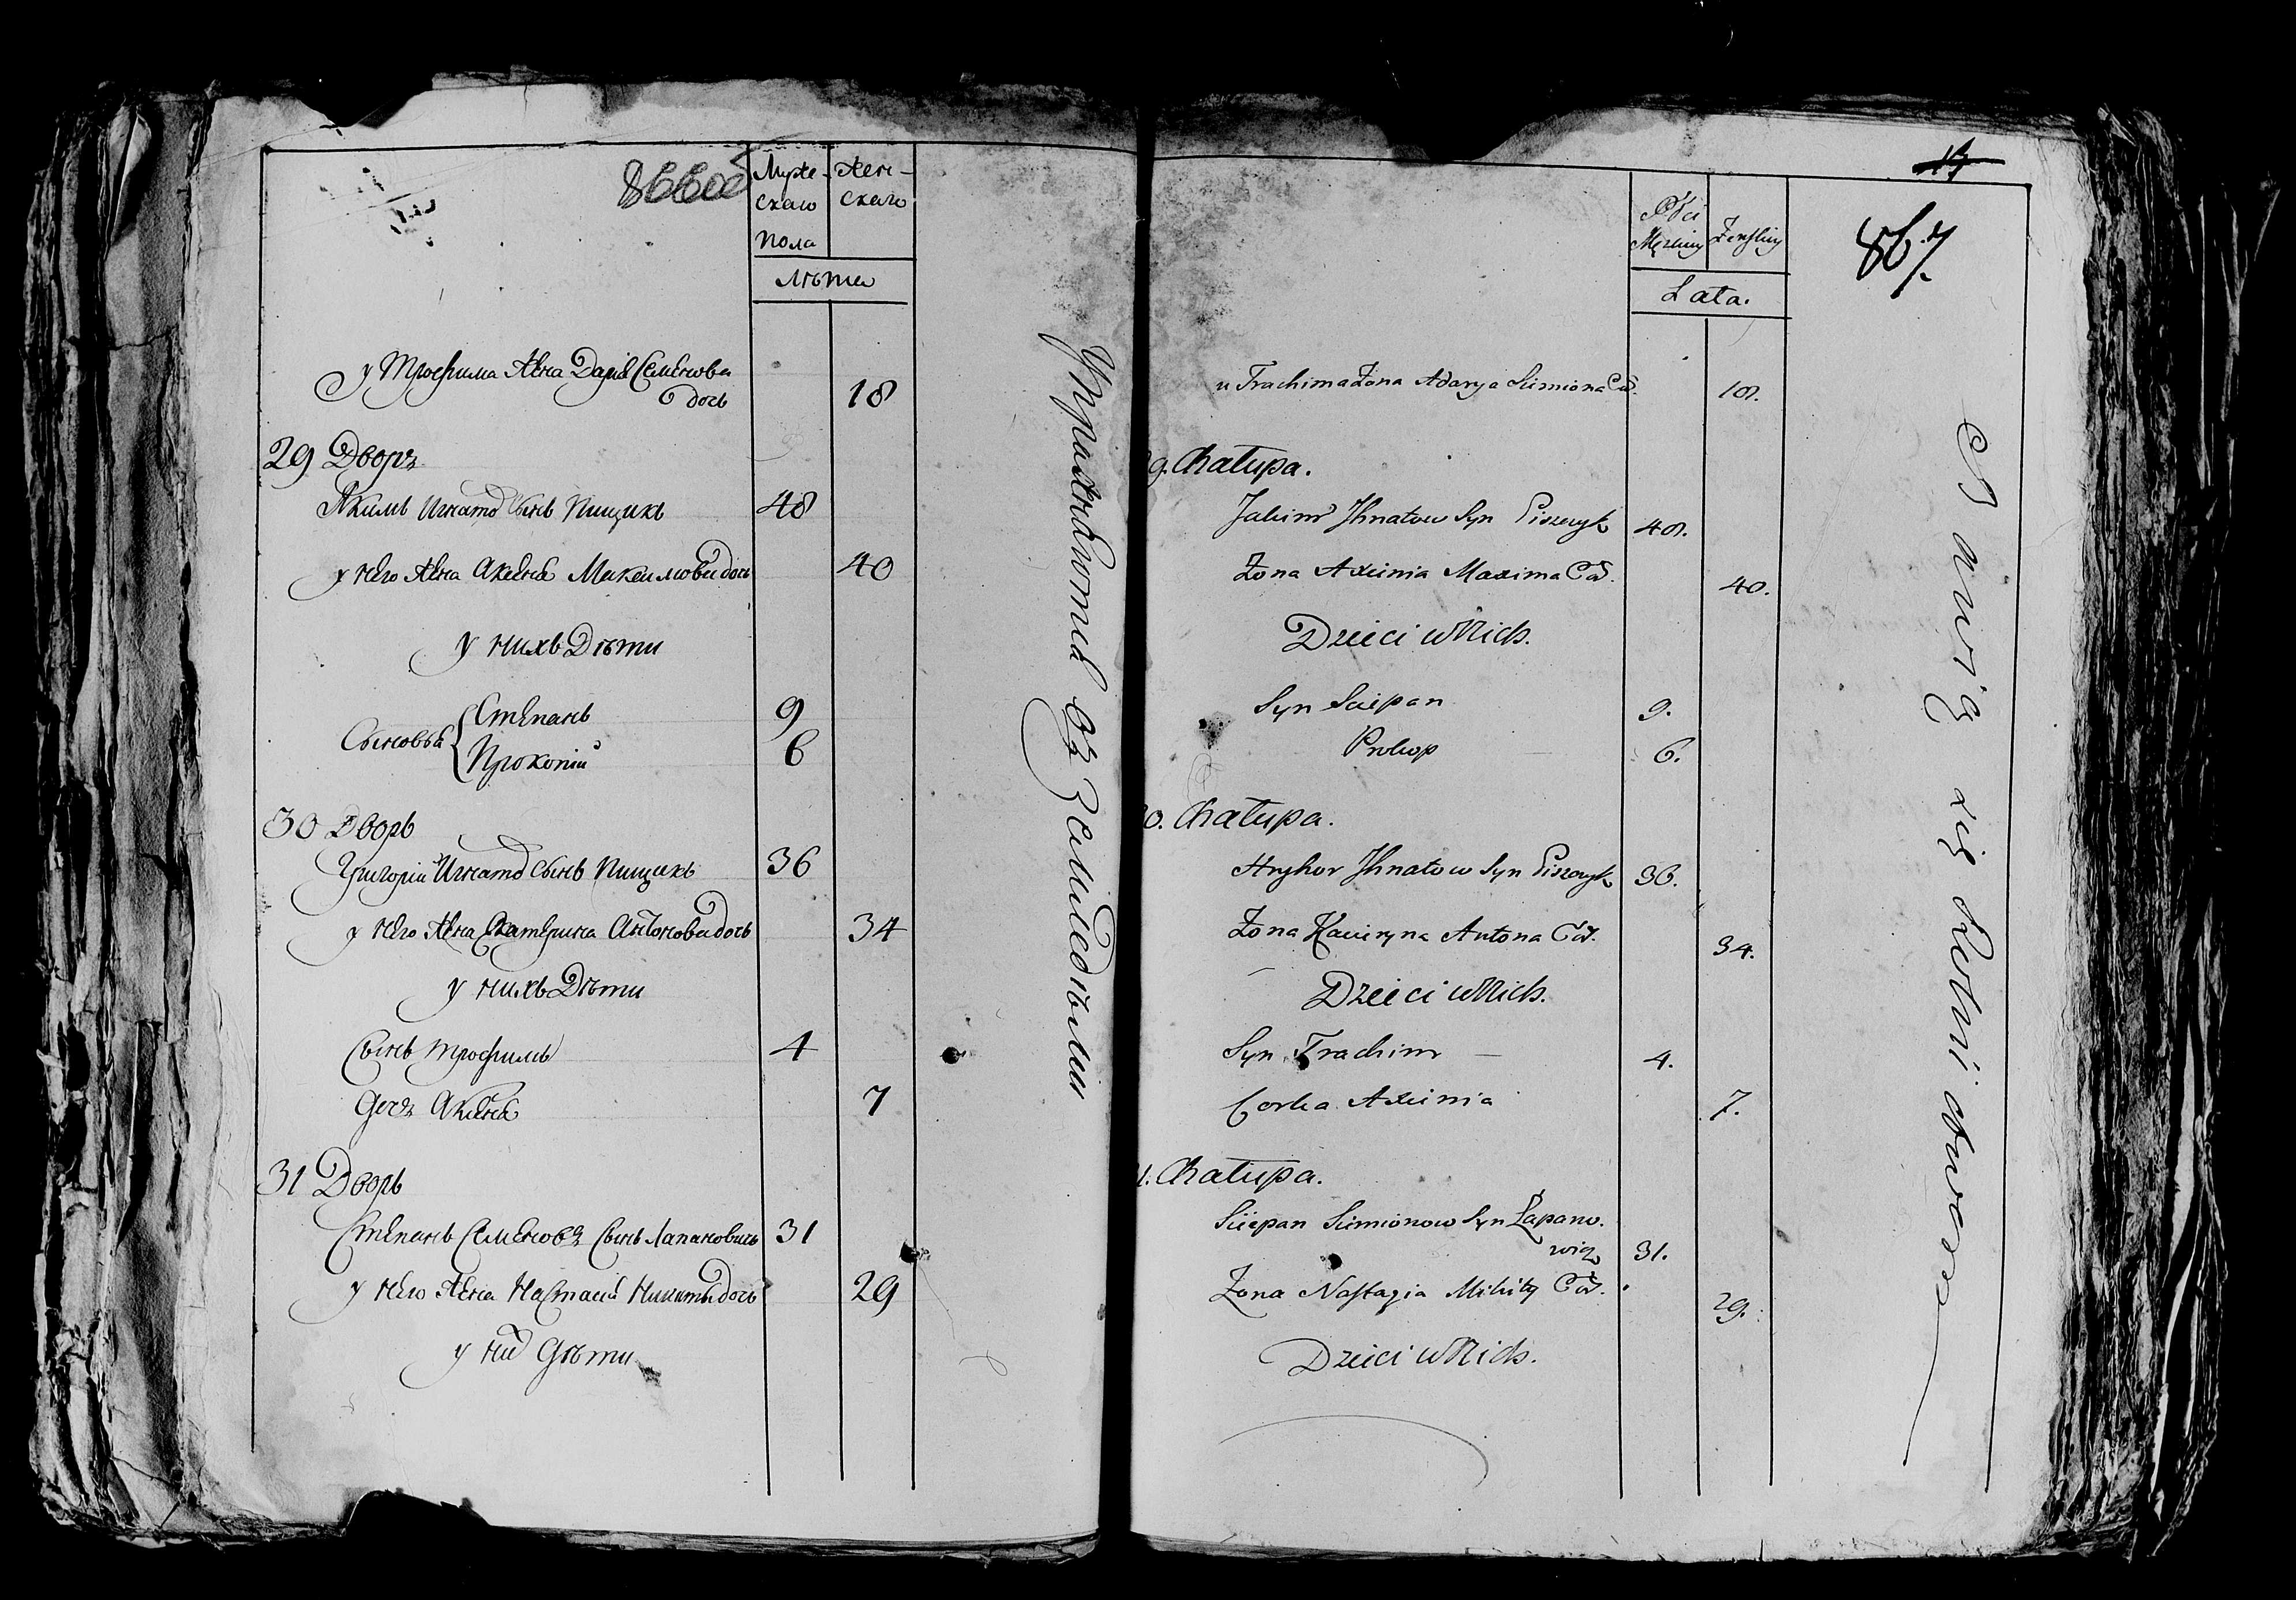 Муже-
скаго
пола
Жен-
скаго
Лѣта
у Трофима Жена Дарія Семенова
дочь 18
29 Дворъ
Якимъ Игнатов Сынъ Пищикъ 48
у него Жена Аксенія Максимова дочь 40
у нихъ Дѣти
Сыновья Степанъ 9
Прокопій 6
30 Дворъ
Григорій Игнатов Сынъ Пищикъ 36
у него Жена Катерина Антонова дочь 34
у нихъ Дѣти
Сынъ Трофимъ 4
Дочь Аксенія 7
31 Дворъ
Степанъ Семеновъ Сынъ Лапановичъ 31
у него Жена Настасія Никиты дочь 29
у них Дѣти
867.
Płci
Męzkiey
Żenskiey
Lata.
u Trachima Żona Adarya Siemiona Cór. 18.
9. Chałupa.
Jakim Ihnatow Syn Piszczyk 48.
Żona Axienia Maxima Cór. 40.
Dzieci u Nich.
Syn Sciepan 9.
Prokop 6.
0. Chałupa.
Hryhor Ihnatow Syn Piszczyk 36.
Żona Kacieryna Antona Cór. 34.
Dzieci u Nich.
Syn Trachim 4.
Corka Axienia 7.
1. Chałupa.
Sciepan Siemionow Syn Łapano-
wicz 31.
Żona Nastazia Mikity Cór. 29.
Dzieci u Nich.